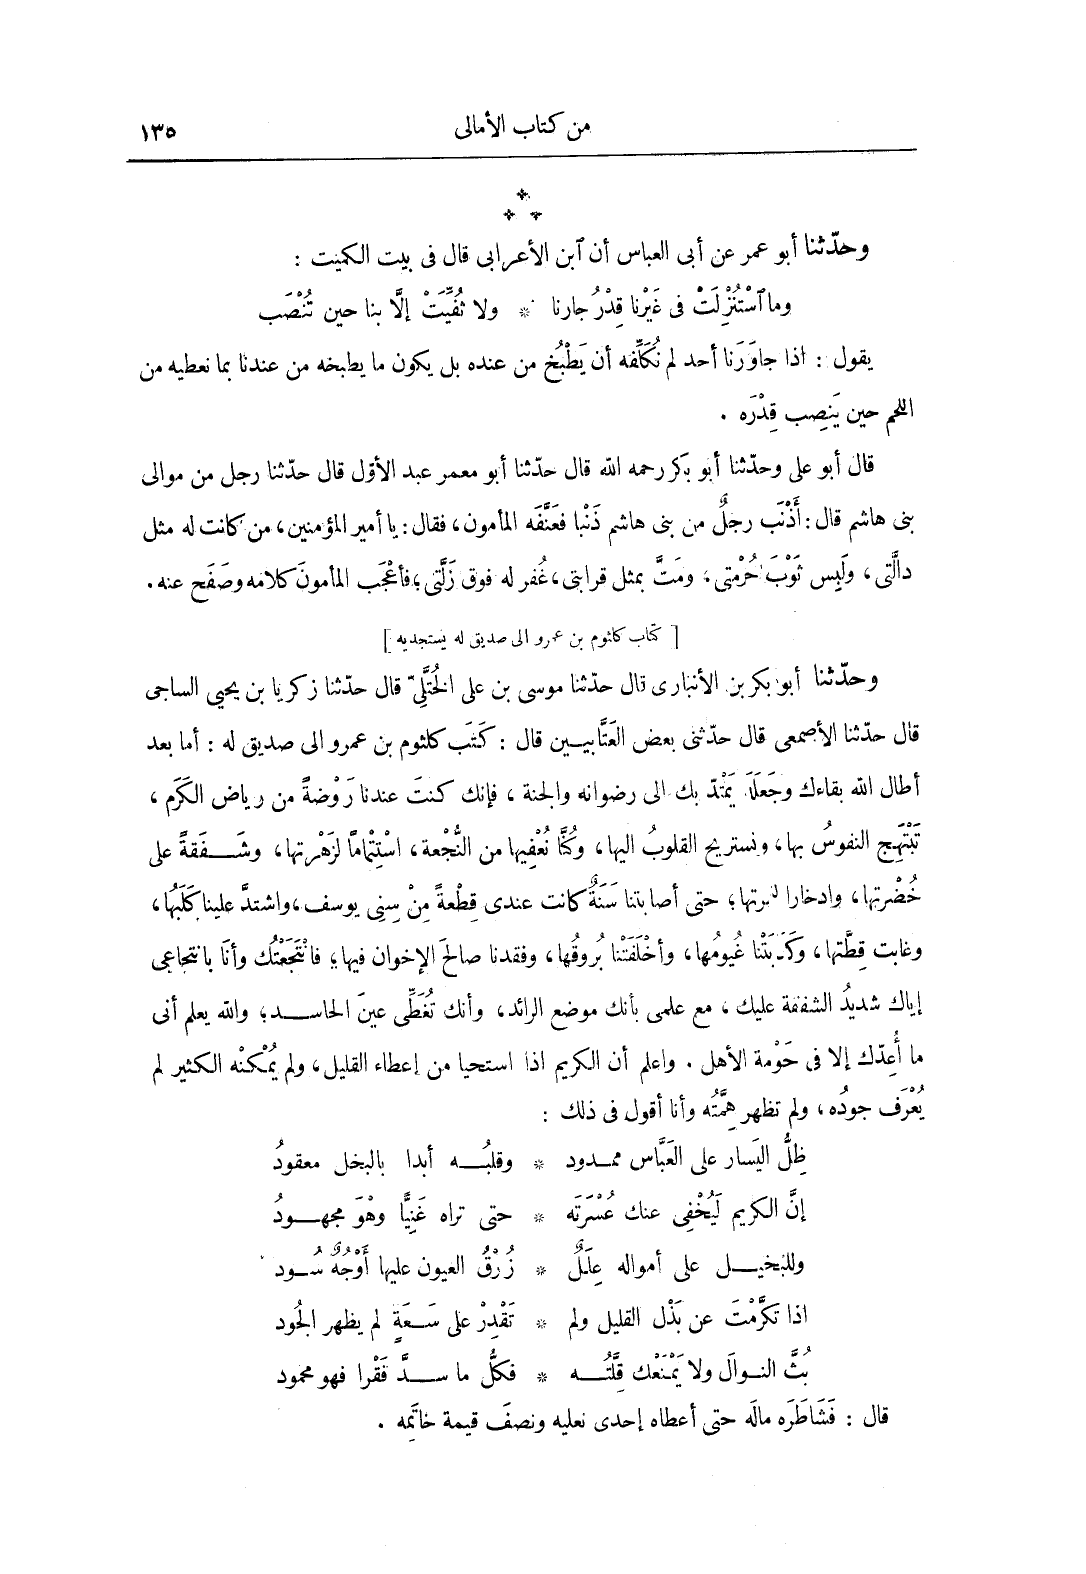 من كتاب الأمالى ١٣٥
وحدّثنا أبو عمر عن أبى العباس أن ٱبن الأعرابى قال فى بيت الكميت :
وما ٱسْتُنْزِلَتْ فى غَيْرنا قِدْرُ جارنا * ولا ثُفِّيَتْ إلَّا بنا حين تُنْصَب
يقول : اذا جاوَرَنا أحد لم نُكَلِّفه أن يَطْبُخ من عنده بل يكون ما يطبخه من عندنا بما نعطيه من
اللحم حين يَنصِب قِدْرَه .
قال أبو على وحدّثنا أبو بكر رحمه الله قال حدّثنا أبو معمر عبد الأوّل قال حدّثنا رجل من موالى
بنى هاشم قال : أَذْنَب رجلٌ من بنى هاشم ذَنْبا فعَنَّفَه المأمون، فقال : يا أمير المؤمنين، من كانت له مثل
دالَّتى، ولَبِس ثَوْبَ حُرْمتى، ومَتَّ بمثل قرابتى، غُفر له فوق زَلَّتى؛ فأعْجَب المأمونَ كلامه وصَفَح عنه .
[ كتاب كلثوم بن عمرو الى صديق له يستجديه ]
وحدّثنا أبو بكر بن الأنبارى قال حدّثنا موسى بن على الخُتَّلِىّ قال حدّثنا زكريا بن يحيى الساجى
قال حدّثنا الأصمعى قال حدّثنى بعض العَتَّابيين قال : كَتَب كلثوم بن عمرو الى صديق له : أما بعد
أطال الله بقاءك وجَعَلَه يَمْتَدّ بك الى رضوانه والجنة ، فإنك كنتَ عندنا رَوْضةً من رياض الكَرَم ،
تَبْتَهِج النفوسُ بها، ونستريح القلوبُ اليها، وكُنَّا نُعْفِيها من النُّجْعة، اسْتِتْماماً لزَهْرتها، وشَفَقةً على
خُضْرتها، وادخارا لثمرتها؛ حتى أصابتنا سَنَةٌ كانت عندى قِطْعةً مِنْ سِنِى يوسف، واشتدَّ علينا كَلَبُها،
وغابت قِطَّتها، وكَذَبَتْنا غُيومُها، وأخْلَفَتْنا بُروقُها، وفقدنا صالحَ الإخوان فيها؛ فانْتَجَعْتُك وأنا بانتجاعى
إياك شديدُ الشفقة عليك ، مع علمى بأنك موضع الرائد، وأنك تُغَطِّى عينَ الحاسد؛ والله يعلم أنى
ما أَعدّك إلا فى حَوْمة الأهل . واعلم أن الكريم اذا استحيا من إعطاء القليل، ولم يُمْكنْه الكثير لم
يُعْرَف جودُه، ولم تظهر هِمَّتُه وأنا أقول فى ذلك :
ظِلُّ اليَسار على العَبَّاس ممدود * وقلبُه أبدا بالبخل معقودُ
إنَّ الكريم لَيُخْفِى عنك عُسْرَتَه * حتى تراه غَنِيًّا وهْوَ مجهودُ
وللبَخيل على أمواله عِلَلٌ * زُرْقُ العيون عليها أَوْجُهٌ سُود
اذا تكَرَّمْتَ عن بَذْل القليل ولم * تَقْدِرْ على سَعَةٍ لم يظهر الجُود
بُثَّ النوالَ ولا يَمْنَعْك قِلَّتُه * فكلُّ ما سدَّ فَقْرا فهو محمود
قال : فَشَاطَرَه مالَه حتى أعطاه إحدى نعليه ونصفَ قيمة خاتَمِه .